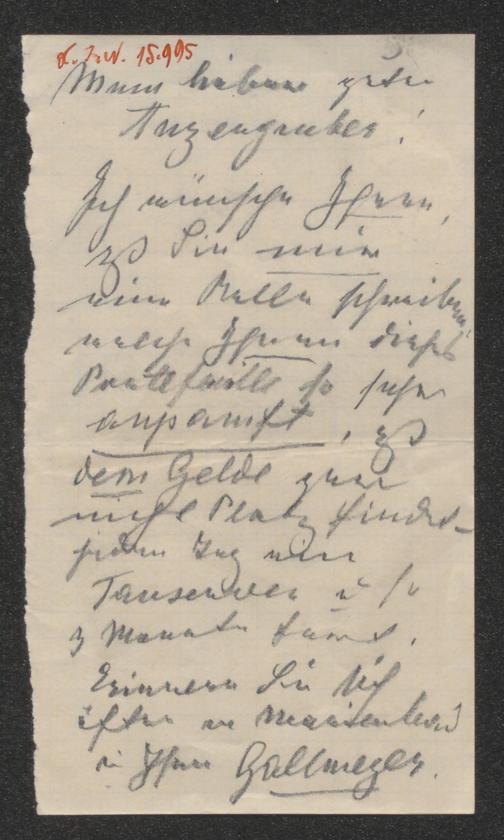 J. N. 15.995
Mein lieber guter
Anzengruber!
Ich wünsche Ihnen,
daß Sie mir
eine Rolle schreiben
welche Ihnen dieses
Portefeuille so sehr
anpampft, daß
dem Gelde gar
nicht Platz findet
jeden Tag ein
Tausender u so
3 Monate
Erinnern Sie sich
öfter an Marienbad
u Ihre Gallmeyer.